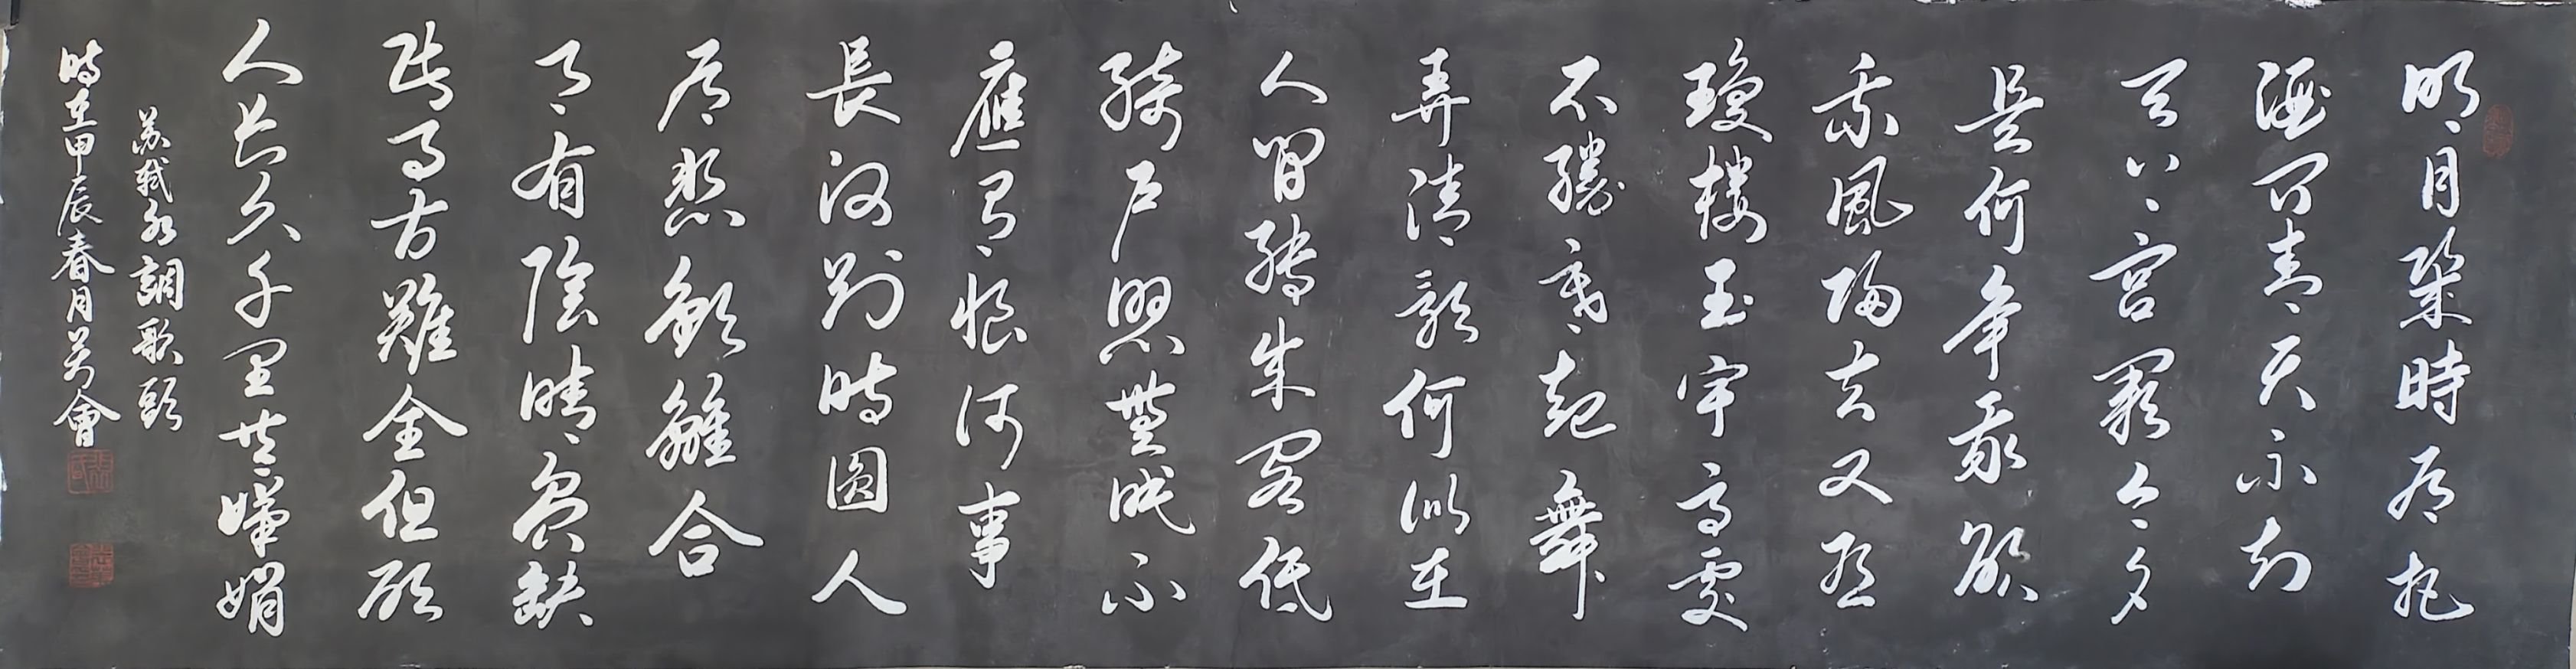 明月幾時有把
酒问青天不知
天上宫闕今夕
是何年我欲
乘風歸去又恐
瓊樓玉宇高處
不勝寒起舞
弄清影何似在
人間轉朱閣低
綺户照無眠不
應有恨何事
長向别時圆人
有悲歡離合
月有陰晴圆缺
此事古難全但願
人長久千里共嬋娟
蘇軾水調歌頭
時在甲辰春月會